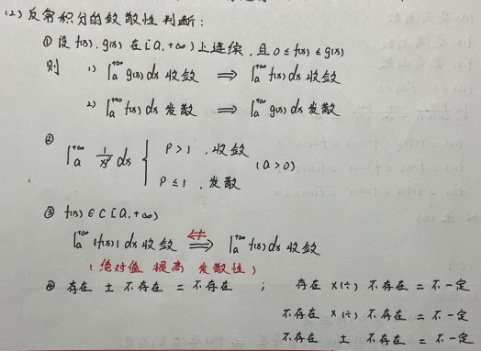 (2) 反常积分的敛散性判断：
① 设 f(x), g(x) 在 [a, +∞) 上连续, 且 0 ≤ f(x) ≤ g(x)
则 1) ∫ₐ⁺∞ g(x) dx 收敛 ⟹ ∫ₐ⁺∞ f(x) dx 收敛
2) ∫ₐ⁺∞ f(x) dx 发散 ⟹ ∫ₐ⁺∞ g(x) dx 发散
②
∫ₐ⁺∞ 1/xᵖ dx { P > 1 , 收敛
(a > 0)
P ≤ 1 , 发散
③ f(x) ∈ C [a, +∞)
∫ₐ⁺∞ |f(x)| dx 收敛 ⇍ ⟹ ∫ₐ⁺∞ f(x) dx 收敛
(绝对值 提高 发散性)
④ 存在 ± 不存在 = 不存在 ； 存在 ×(÷) 不存在 = 不一定
不存在 ×(÷) 不存在 = 不一定
不存在 ± 不存在 = 不一定